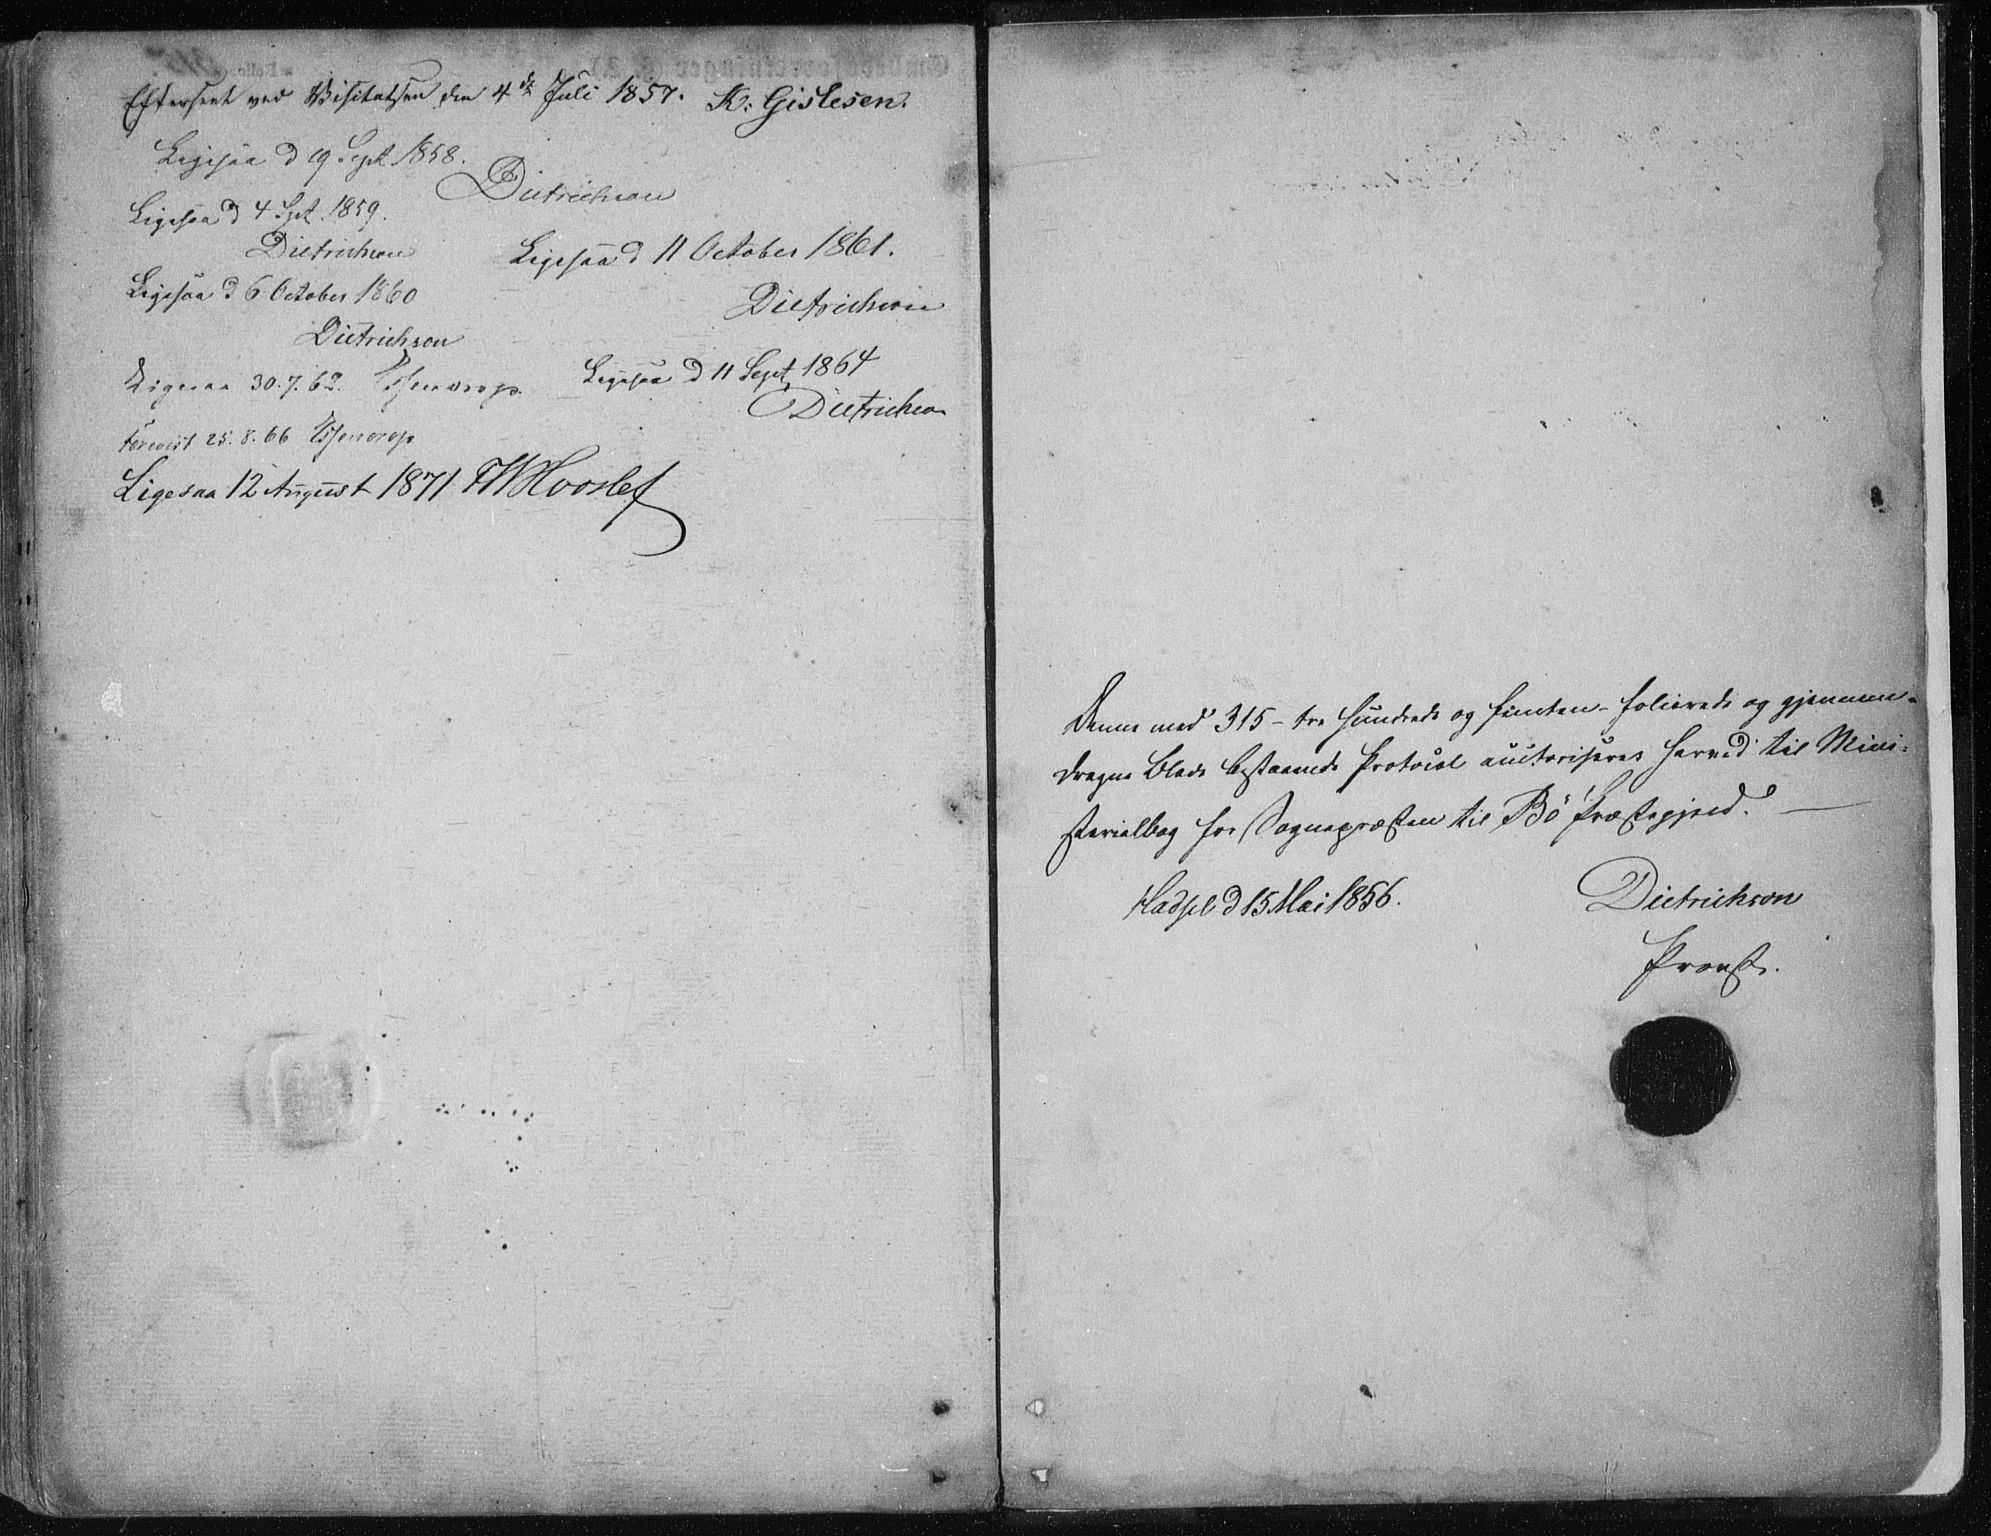 Efterseet ved Visitatsen den 4de Juli 1857. K: Gislesen.
Ligesaa d 19 Sept. 1858.
Dietrichson
Ligesaa d 4 Spt. 1859.
Dietrichson
Ligesaa d 6 October 1860
Dietrichson
Ligesaa d 11 October 1861.
Dietrichson
Ligesaa 30.7.62. Essendrop.
Ligesaa d 11 Sept 1864
Dietrichson
Forevist 25.8.66 Essendrop
Ligesaa 12 August 1871 FWHvoslef
Denne med 315 - tre hundrede og femten - folierede og gjennem-
dragne Blade bestaaende Protocol auctoriseres herved til Mini-
sterialbog for Sognepræsten til Bö Præstegjeld. —
Hadsel d 15 Mai 1856.
Dietrichson
Provst.